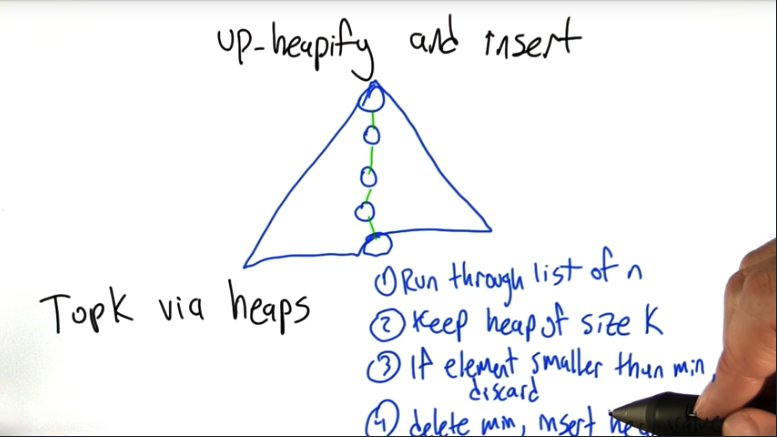 up-heapify and insert
TopK via heaps
① Run through list of n
② Keep heap of size K
③ If element smaller than min,
discard
④ delete min, insert